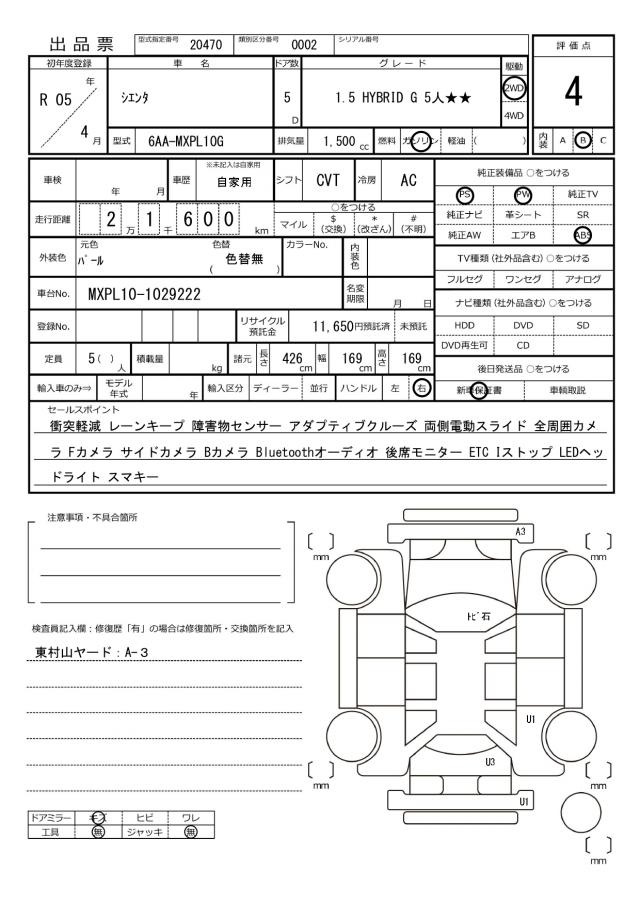 出品票 型式指定番号 20470 類別区分番号 0002 シリアル番号
評価点
初年度登録 車名 ドア数 グレード 駆動
R 05 年 4 月 シエンタ 5 D 1.5 HYBRID G 5人★★ 2WD 4WD
4
型式 6AA-MXPL10G 排気量 1,500 cc 燃料 ガソリン 軽油 ( )
内装 A B C
車検 年 月 車歴 ※未記入は自家用 自家用 シフト CVT 冷房 AC
純正装備品 ○をつける
PS PW 純正TV
走行距離 2 万 1 千 6 0 0 km ○をつける
マイル $(交換) *(改ざん) #(不明)
純正ナビ 革シート SR
純正AW エアB ABS
外装色 元色 パール 色替 色替無 ( ) カラーNo. 内装色
TV種類(社外品含む)○をつける
フルセグ ワンセグ アナログ
車台No. MXPL10-1029222 名変期限 月 日
ナビ種類(社外品含む)○をつける
登録No. リサイクル預託金 11,650円預託済 未預託
HDD DVD SD
DVD再生可 CD
定員 5( )人 積載量 kg 諸元 長さ 426 cm 幅 169 cm 高さ 169 cm
後日発送品 ○をつける
輸入車のみ⇒ モデル年式 年 輸入区分 ディーラー 並行 ハンドル 左 右
新車保証書 車輌取説
セールスポイント
衝突軽減 レーンキープ 障害物センサー アダプティブクルーズ 両側電動スライド 全周囲カメ
ラ Fカメラ サイドカメラ Bカメラ Bluetoothオーディオ 後席モニター ETC Iストップ LEDヘッ
ドライト スマキー
注意事項・不具合箇所
A3
mm mm
トビ石
検査員記入欄：修復歴「有」の場合は修復箇所・交換箇所を記入
東村山ヤード：A-3
U1
U3
mm mm
U1
ドアミラー キズ ヒビ ワレ
工具 無 ジャッキ 無
mm